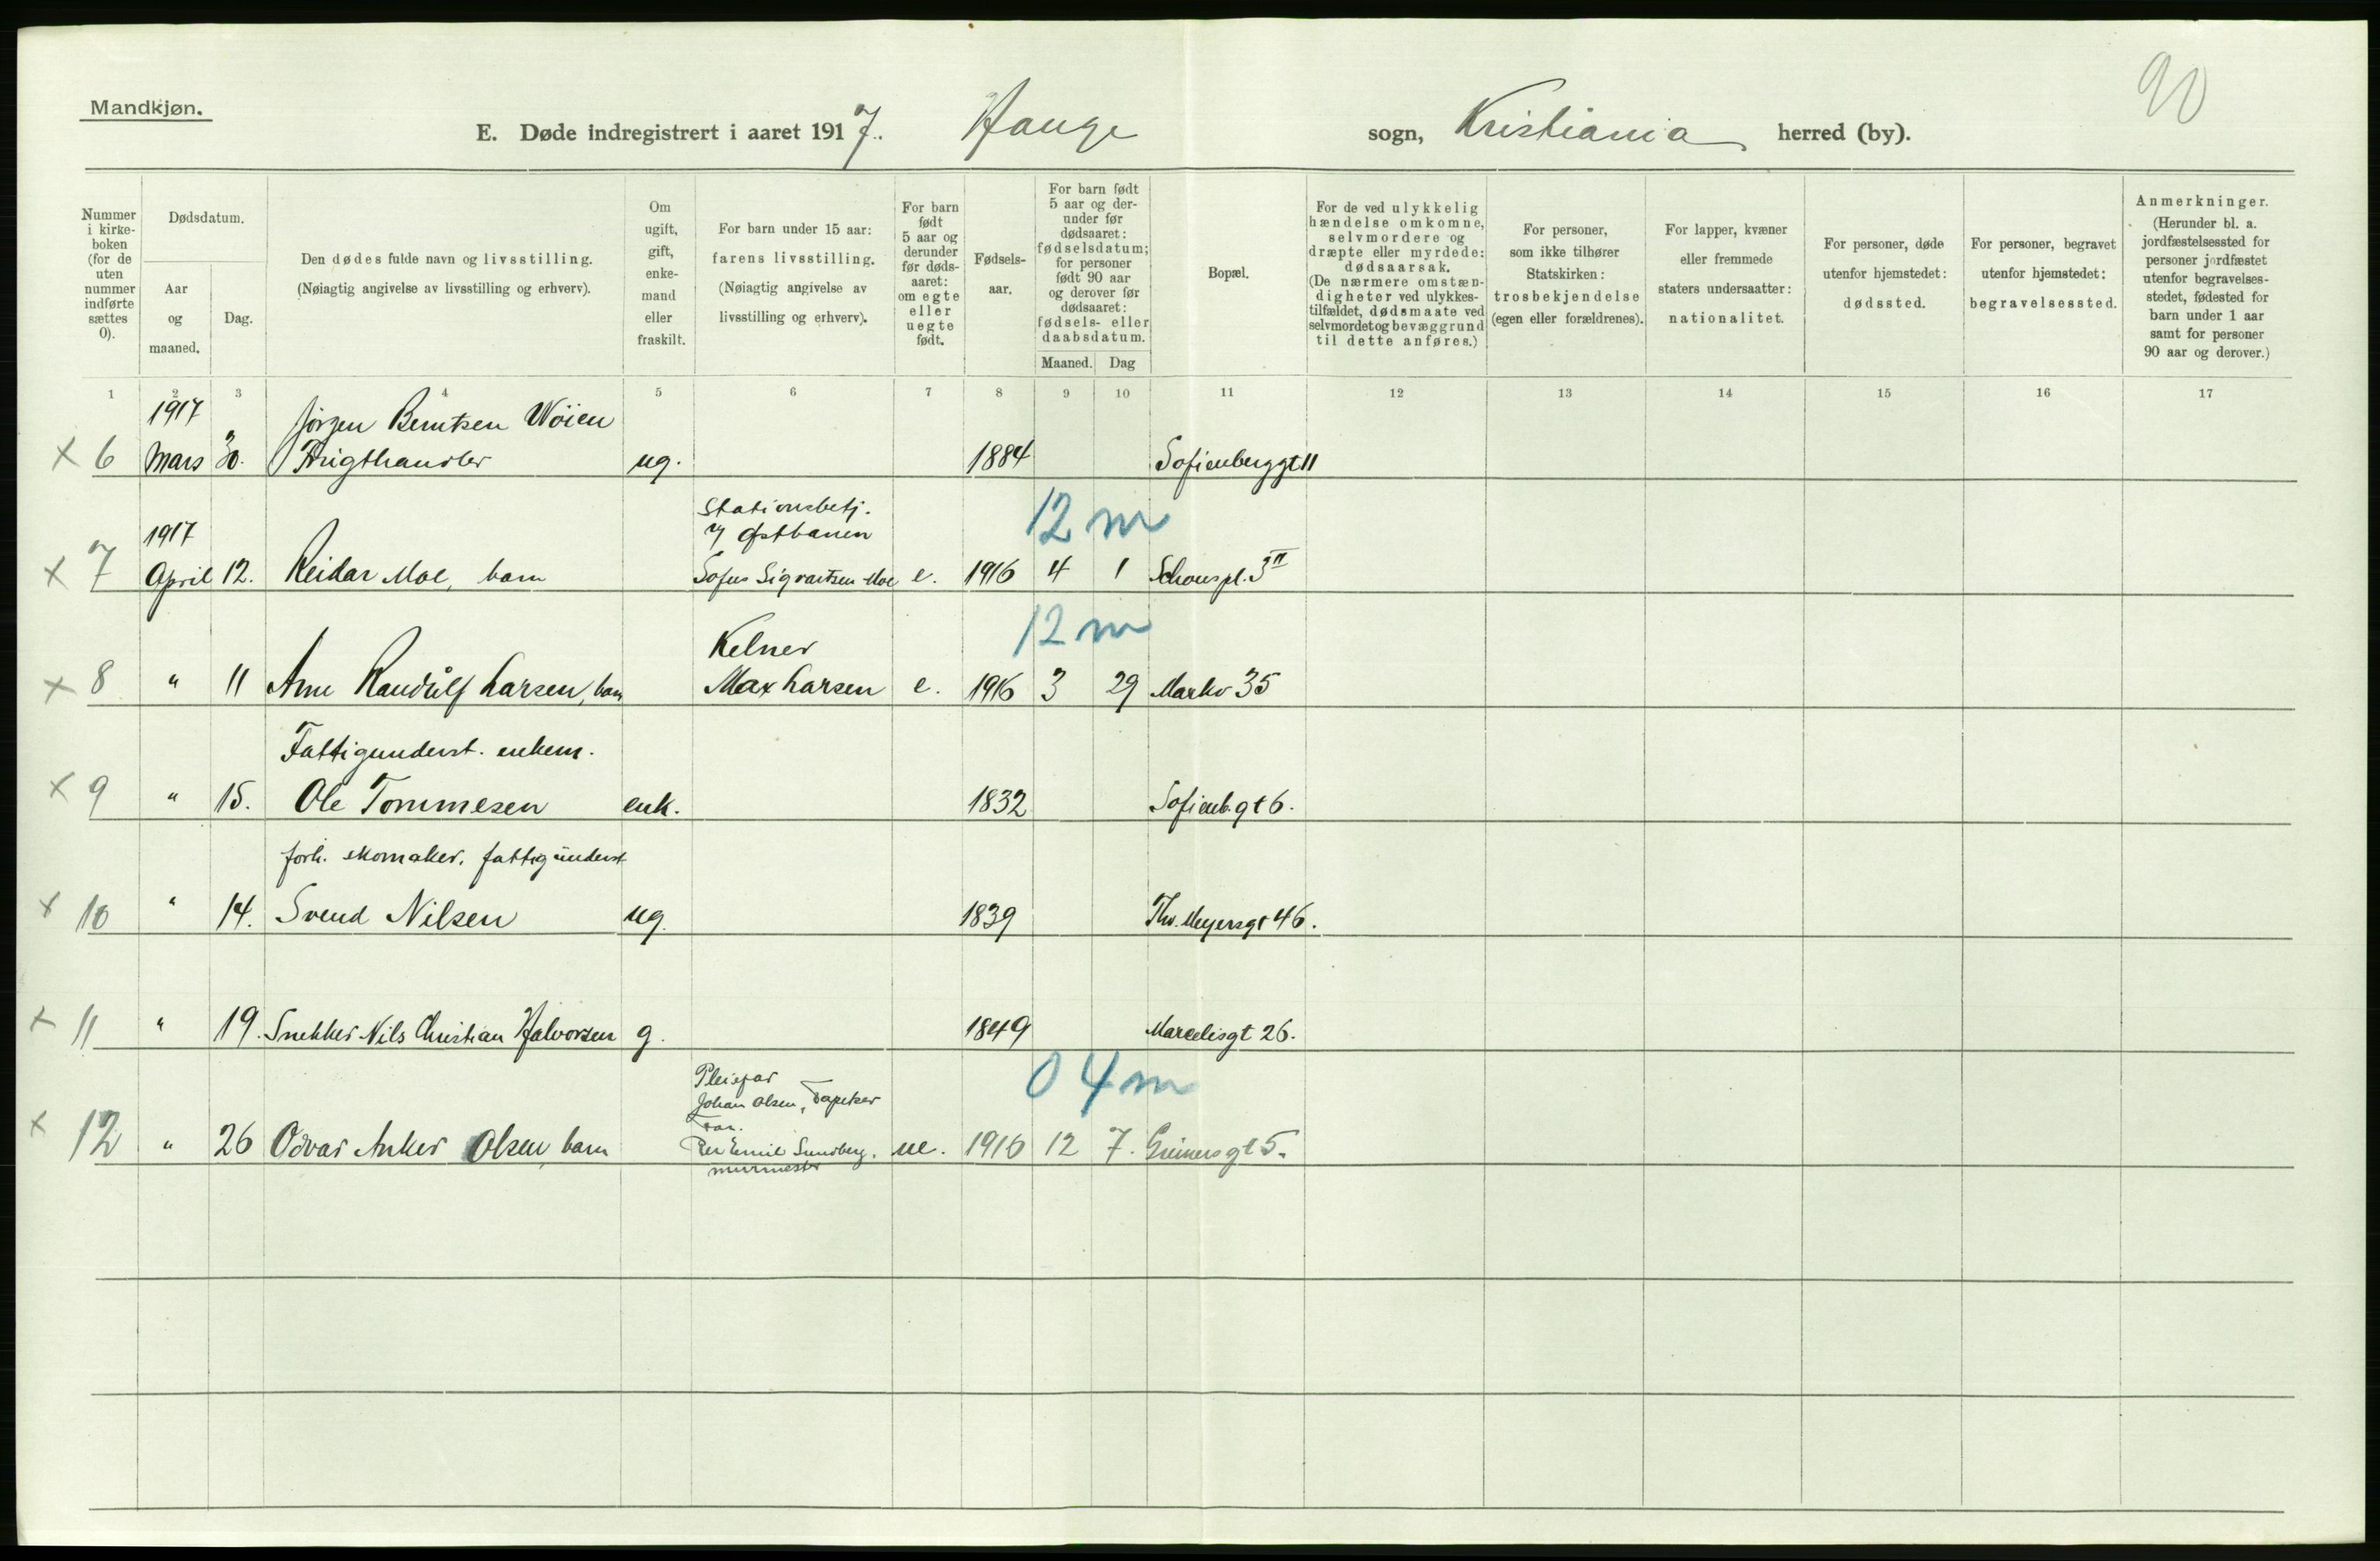 90
Mandkjøn.
E. Døde indregistrert i aaret 1917. Hauge sogn, Kristiania herred (by).
Nummer i kirkeboken (for de uten nummer indførte sættes 0).
Dødsdatum.
Aar og maaned.
Dag.
Den dødes fulde navn og livsstilling.
(Nøiagtig angivelse av livsstilling og erhverv).
Om ugift, gift, enkemand eller fraskilt.
For barn under 15 aar: farens livsstilling. (Nøiagtig angivelse av livsstilling og erhverv).
For barn født 5 aar og derunder før dødsaaret: om egte eller uegte født.
Fødselsaar.
For barn født 5 aar og derunder før dødsaaret: fødselsdatum; for personer født 90 aar og derover før dødsaaret: fødsels- eller daabsdatum.
Maaned. Dag
Bopæl.
For de ved ulykkelig hændelse omkomne, selvmordere og dræpte eller myrdede: dødsaarsak. (De nærmere omstændigheter ved ulykkestilfældet, dødsmaate ved selvmordet og bevæggrund til dette anføres.)
For personer, som ikke tilhører Statskirken: trosbekjendelse (egen eller forældrenes).
For lapper, kvæner eller fremmede staters undersaatter: nationalitet.
For personer, døde utenfor hjemstedet: dødssted.
For personer, begravet utenfor hjemstedet: begravelsessted.
Anmerkninger. (Herunder bl. a. jordfæstelsessted for personer jordfæstet utenfor begravelsesstedet, fødested for barn under 1 aar samt for personer 90 aar og derover.)
1 2 3 4 5 6 7 8 9 10 11 12 13 14 15 16 17
1917 Jörgen Berntsen Wöien
x 6 Mars 30. ug. 1884 Sofienberggt 11
Stationsbetj.
1917 v/ Østbanen 12 m
x 7 April 12. Reidar Moe, barn Sofus Sigvartsen Moe e. 1916 4 1 Schouspl. 3 II
Kelner 12 m
x 8 " 11 Arne Randulf Larsen, barn Max Larsen e. 1916 3 29 Markv 35
Fattigunderst. enkem.
x 9 " 15. Ole Tommesen enk. 1832 Sofienb.gt 6.
forh. skomaker, fattigunderst
x 10 " 14. Svend Nilsen ug. 1839 Thv. Meyersgt 46.
x 11 " 19. Snekker Nils Christian Halvorsen g. 1849 Marcelisgt 26.
Pleiefar 0 4 m
Johan Olsen, Tapetser
Far.
x 12 " 26 Odvar Anker Olsen, barn Per Emil Sundberg. ue. 1916 12 7. Greinersgt 5.
murmester